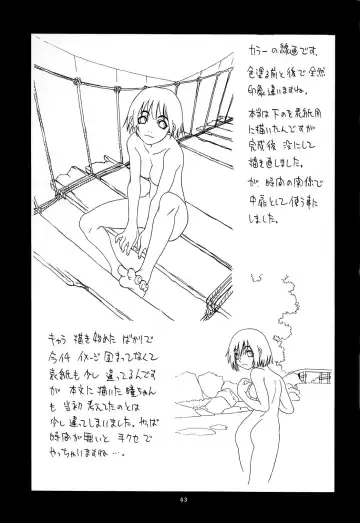 カラーの線画です。
色塗る前と後で全然
印象違いますね。
本当は下のを表紙用
に描いたんですが
完成後 没にして
描き直しました。
が、時間の関係で
中扉として使う事に
しました。
キャラ 描き始めた ばかりで
今イチ イメージ 固まってなくて
表紙も 少し 違ってるんです
が 本文に 描いた 瞳ちゃん
も 当初 考えてたのとは
少し違ってしまいました。やっぱ
時間が無いと 手クセで
やっちゃいますね…。
43